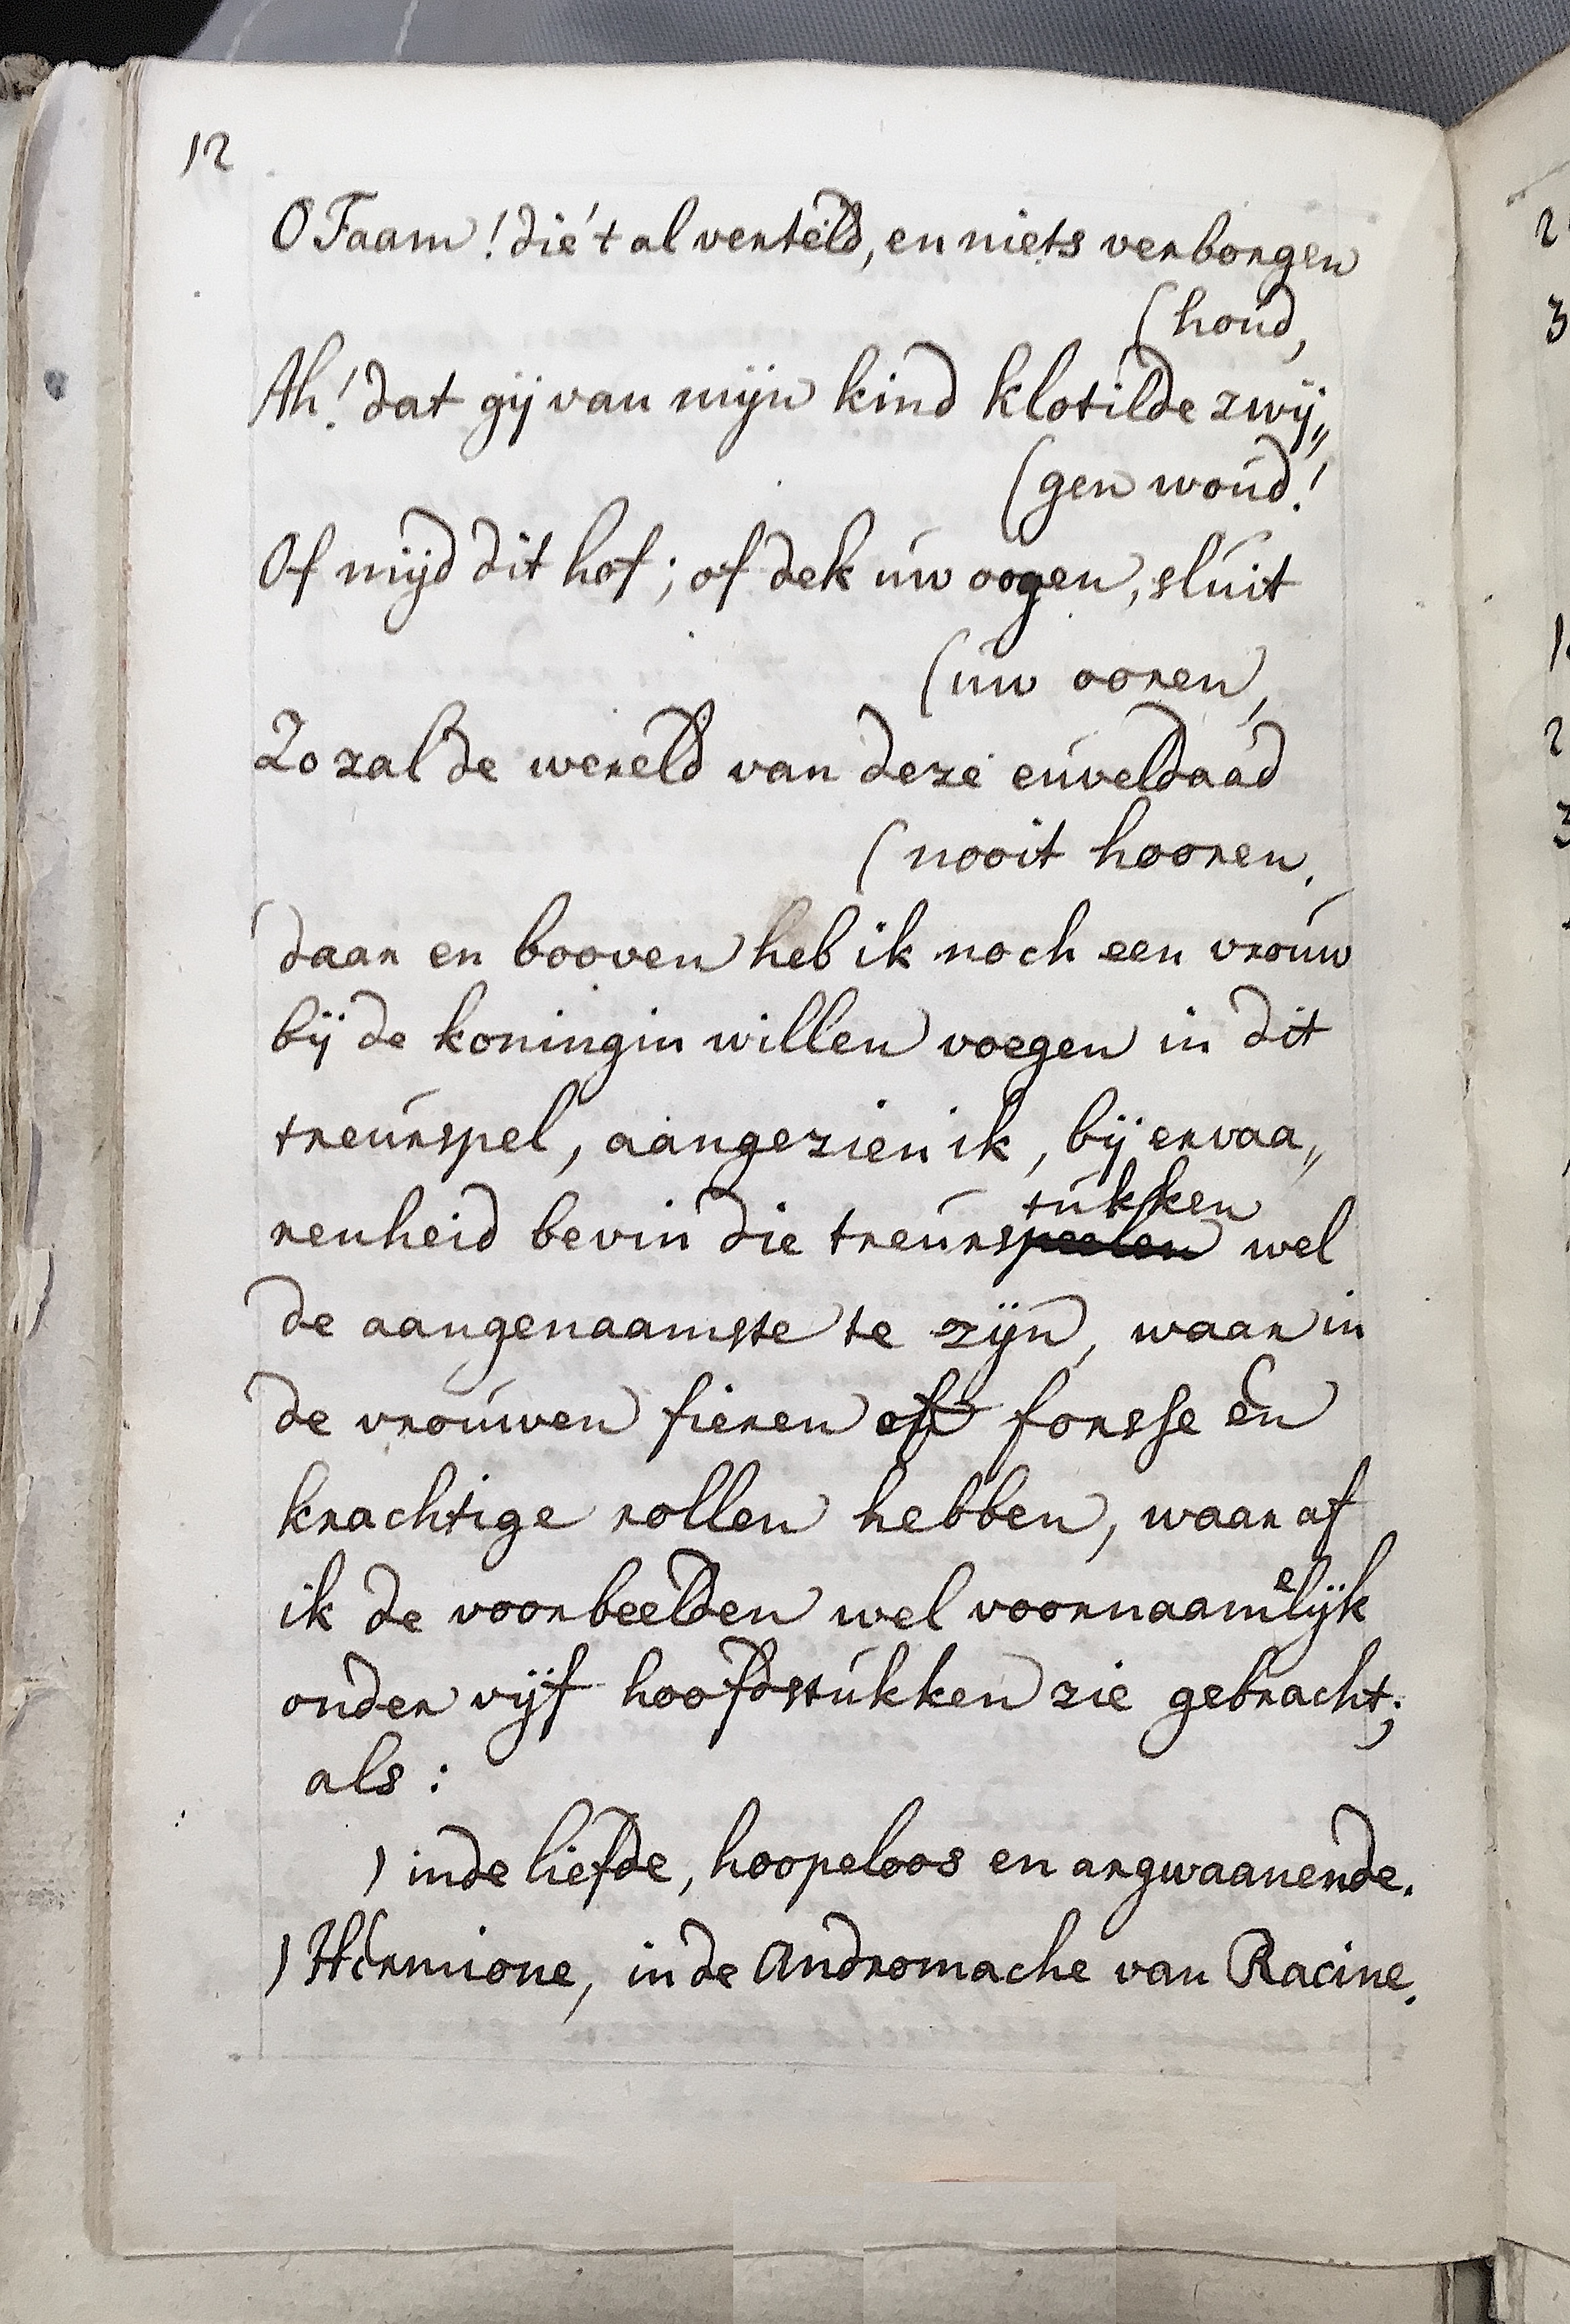 12
O Faam! die 't al verteld, en niets verborgen
(houd,
Ah! dat gij van mijn kind klotilde zwij„
(gen woud!
Of mijd dit hof; of dek uw oogen, sluit
(uw ooren,
Zo zal de wereld van deze euveldaad
(nooit hooren.
daar en booven heb ik noch een vrouw
bij de koningin willen voegen in dit
treurspel, aangezien ik, bij ervaa„
tukken
renheid bevin die treurspeelen wel
de aangenaamste te zijn, waar in
de vrouwen fieren of forsse en
krachtige rollen hebben, waar af
ik de voorbeelden wel voornaamelijk
onder vijf hoofdstukken zie gebracht;
als:
) in de liefde, hoopeloos en argwaanende.
) Hermione, in de Andromache van Racine.
2
3
1
2
3